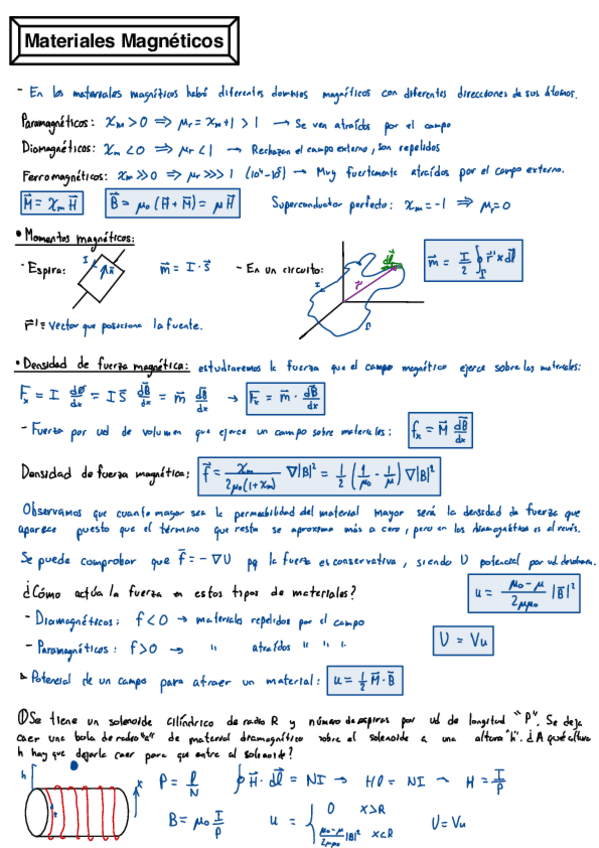 Materiales Magnéticos
- En los materiales magnéticos habrá diferentes dominios magnéticos con diferentes direcciones de sus átomos.
Paramagnéticos: χm > 0 ⇒ μr = χm + 1 > 1 → Se ven atraídos por el campo
Diamagnéticos: χm < 0 ⇒ μr < 1 → Rechazan el campo externo, son repelidos
Ferromagnéticos: χm >> 0 ⇒ μr >>> 1 (10⁴-10⁵) → Muy fuertemente atraídos por el campo externo.
M⃗ = χm H⃗ B⃗ = μ₀ (H⃗ + M⃗) = μ H⃗ Superconductor perfecto: χm = -1 ⇒ μr = 0
• Momentos magnéticos:
- Espira: I m⃗ = I · S⃗ - En un circuito: I r⃗' dl⃗ Γ m⃗ = I/2 ∮Γ r⃗' × dl⃗
r⃗' ≡ vector que posiciona la fuente.
• Densidad de fuerza magnética: estudiaremos la fuerza que el campo magnético ejerce sobre los materiales:
Fx = I dØ/dx = I S⃗ dB⃗/dx = m⃗ dB⃗/dx → Fx = m⃗ · dB⃗/dx
- Fuerza por ud de volumen que ejerce un campo sobre materiales: fx = M⃗ dB⃗/dx
Densidad de fuerza magnética: f⃗ = χm/2μ₀(1+χm) ∇|B|² = 1/2 (1/μ₀ - 1/μ) ∇|B|²
Observamos que cuanto mayor sea la permeabilidad del material mayor será la densidad de fuerza que
aparece puesto que el término que resta se aproxima más a cero, pero en los diamagnéticos es al revés.
Se puede comprobar que f⃗ = -∇U pq la fuerza es conservativa, siendo U potencial por ud de volumen.
¿Cómo actúa la fuerza en estos tipos de materiales? u = μ₀-μ/2μμ₀ |B⃗|²
- Diamagnéticos: f < 0 → materiales repelidos por el campo
- Paramagnéticos: f > 0 → " atraídos " " " U = Vu
Potencial de un campo para atraer un material: u = 1/2 M⃗·B⃗
① Se tiene un solenoide cilíndrico de radio R y número de espiras por ud de longitud "P". Se deja
caer una bola de radio "a" de material diamagnético sobre el solenoide a una altura "h". ¿A qué altura
h hay que dejarla caer para que entre al solenoide?
h P = l/N ∮ H⃗ · dl⃗ = NI → Hl = NI → H = I/P
B = μ₀ I/P u = { 0 x>R
μ₀-μ/2μμ₀ |B|² x<R U = Vu